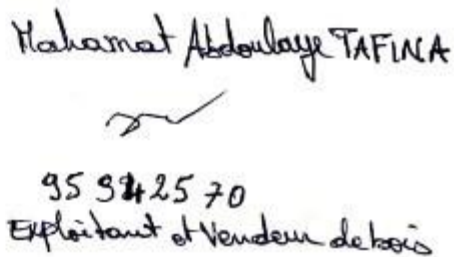 Mahamat Abdoulaye TAFINA
25 70
Exploitant et Vendeur de bois